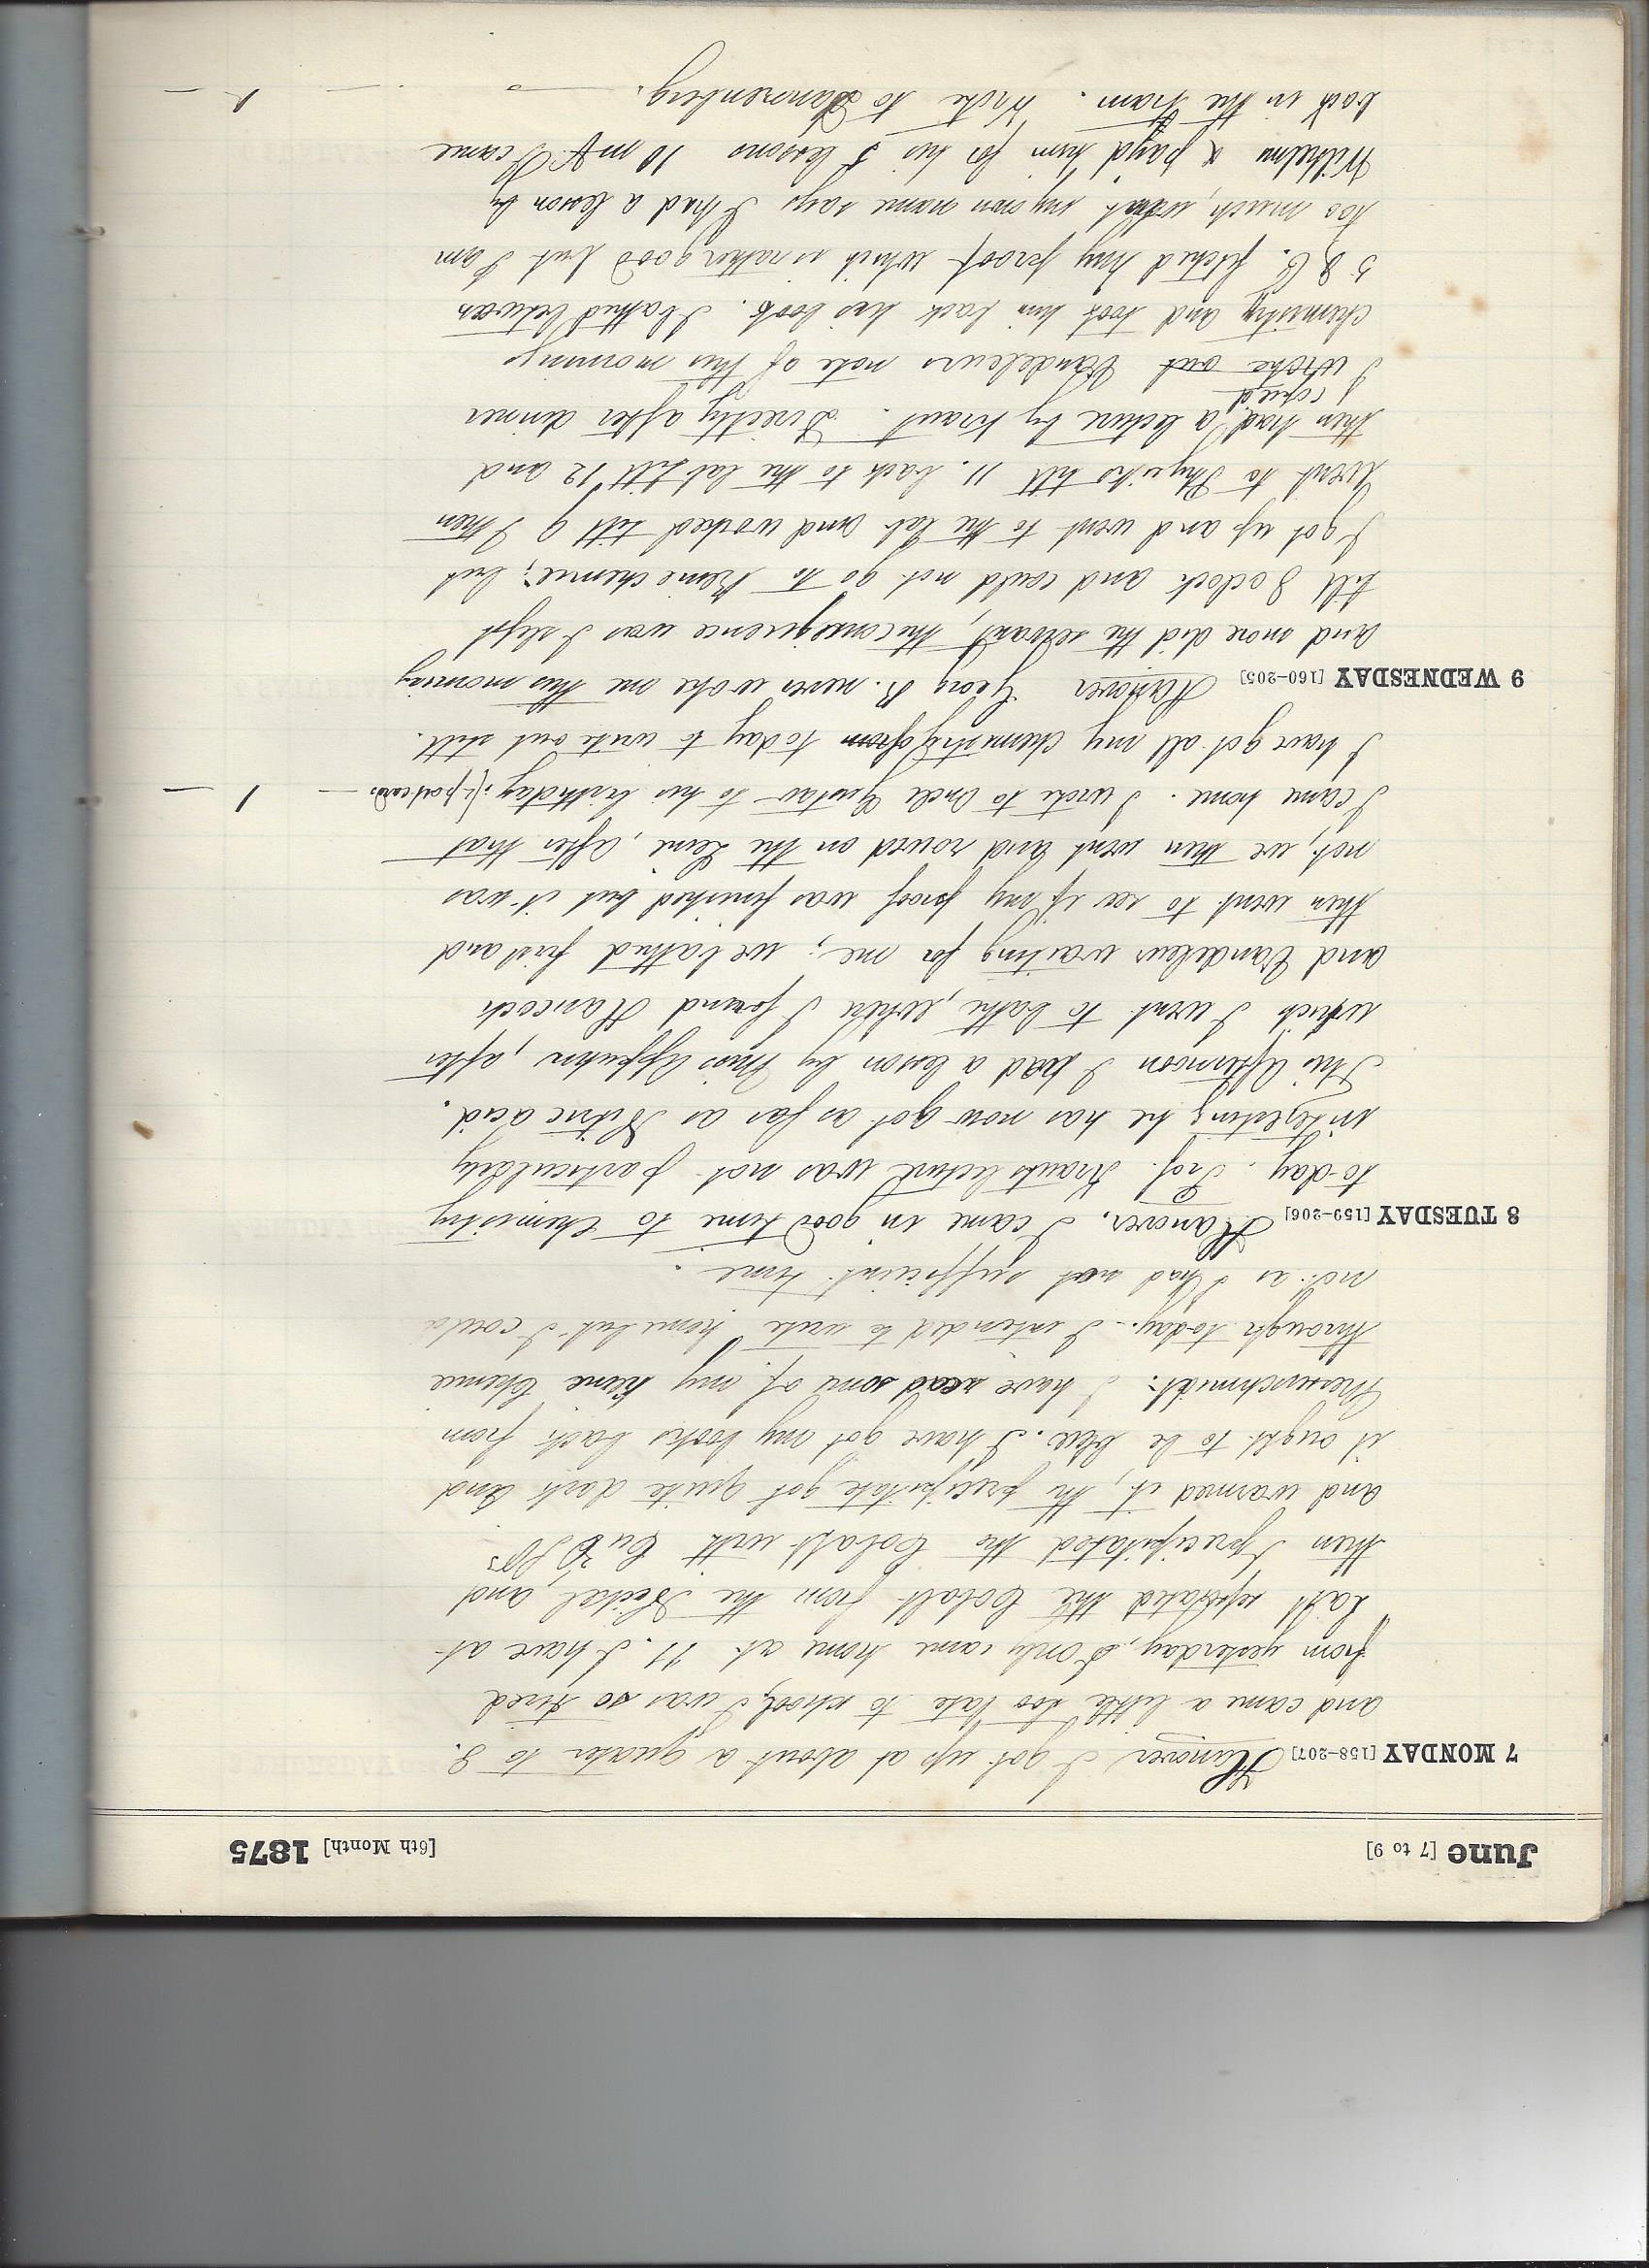 June [7 to 9] [6th Month] 1875
7 MONDAY [158-207] Hanover I got up at about a quater to 8.
and came a little too late to school, I was so tired
from yesterday, I only came home at 11. I have at
last seperated the Cobalt from the Nickel, and
then I precipitated the Cobalt with
and warmed it, the precipitate got quite dark and
it ought to be blue. I have got my books back from
Messerschmidt. I have read some of my Reine Chemie
through today. I intended to write home but I could
not as I had not sufficient time.
8 TUESDAY [159-206] Hanover. I came in good time to Chemistry
to-day. Prof. Krauts lecture was not particularly
integesting he has now got as far as Nitric acid.
This Afternoon I had a lesson by Miss , after
which I went to bathe, where I found Hancock
and Vandeleur waiting for me; we bathed first and
then went to see if my proof was finished but it was
not, we then went and rowed on the Leine, after that
I came home. I wrote to Uncle Gustav to his birthday. (postcard) — 1 —
I have got all my chemistry from today to write out still.
9 WEDNESDAY [160-205] Hanover Georg B. never woke me this morning
and more did the servant, the consequence was I slept
till 8 oclock and could not go to Reine chemie; but
I got up and went to the lab and worked till 9 I then
went to Physiks till 11. back to the lab till 12 and
then had a lecture by Kraut. Directly after dinner
I copied
I wrote out Vandeleurs note of this mornings
chemistry and took him back his book. I bathed between
5 & 6. fetched my proof which is rather good but I am
too much, what my own name says I had a lesson by
Wilhelm & payd him for his 5 lessons 10 mk I came
back in the tram. Wrote to Dannenberg.